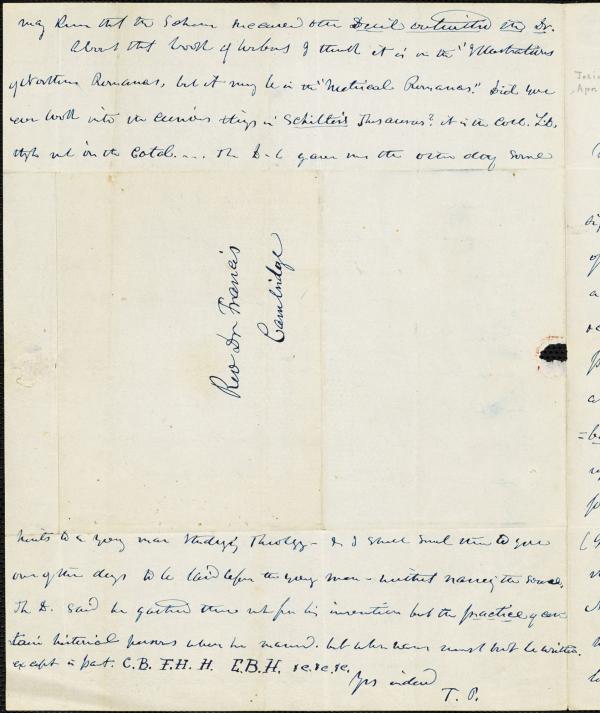 may
that the
the Devil outwitted the Dr.
About that book of I think it is in the "Illustrations
of Northern Romances, but it may be in the "Metrical Romances." Did you
ever look into the curious things in Schilter's Thesaurus? it is in the Coll. Lib.
not in the Catal.... The D-l gave me the other day some
Rev Dr Francis
Cambridge
hints to a young man studying Theology - & I shall send them to you
one of the days to be laid before the young men - without naming the source.
The D. said he gathered them not from his invention but the practice of cer-
tain historical persons whom he named. but whose names must not be written
except in part. C.B. F.H. H. E.B.H. &c. &c. &c.
Yrs indeed
T. P.